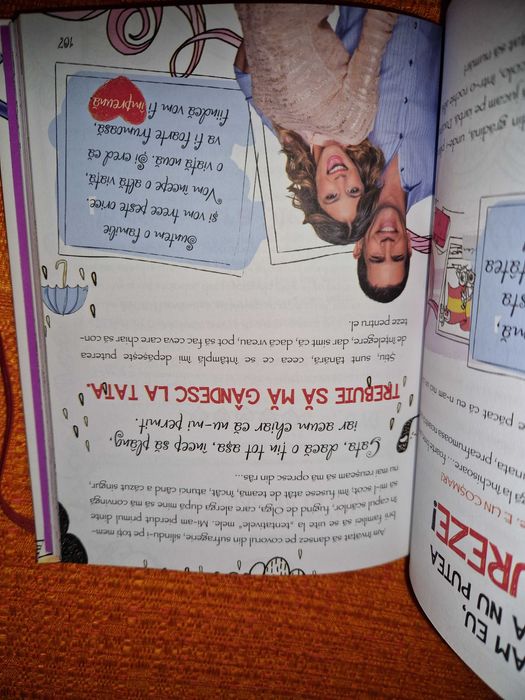 Am învățat să dansez pe covorul din sufragerie, silindu-i pe toți mem-
brii familiei să se uite la „tentativele” mele. Mi-am pierdut primul dinte
în capul scărilor, fugind de Olga, care alerga după mine să mă convingă
să mi-l scot; îmi fusese atât de teamă, încât, atunci când a căzut singur,
nu mai reușeam să mă opresc din râs...
Gata, dacă o țin tot așa, încep să plâng,
iar acum chiar că nu-mi permit.
TREBUIE SĂ MĂ GÂNDESC LA TATA.
Știu, sunt tânără, ceea ce se întâmplă îmi depășește puterea
de înțelegere, dar simt că, dacă vreau, pot să fac ceva care chiar să con-
teze pentru el.
Suntem o familie
și vom trece peste orice.
Vom începe o altă viață,
o viață nouă. Și cred că
va fi foarte frumoasă,
fiindcă vom fi
împreună
107
AM EU,
A NU PUTEA
UREZE!
E UN COȘMAR!